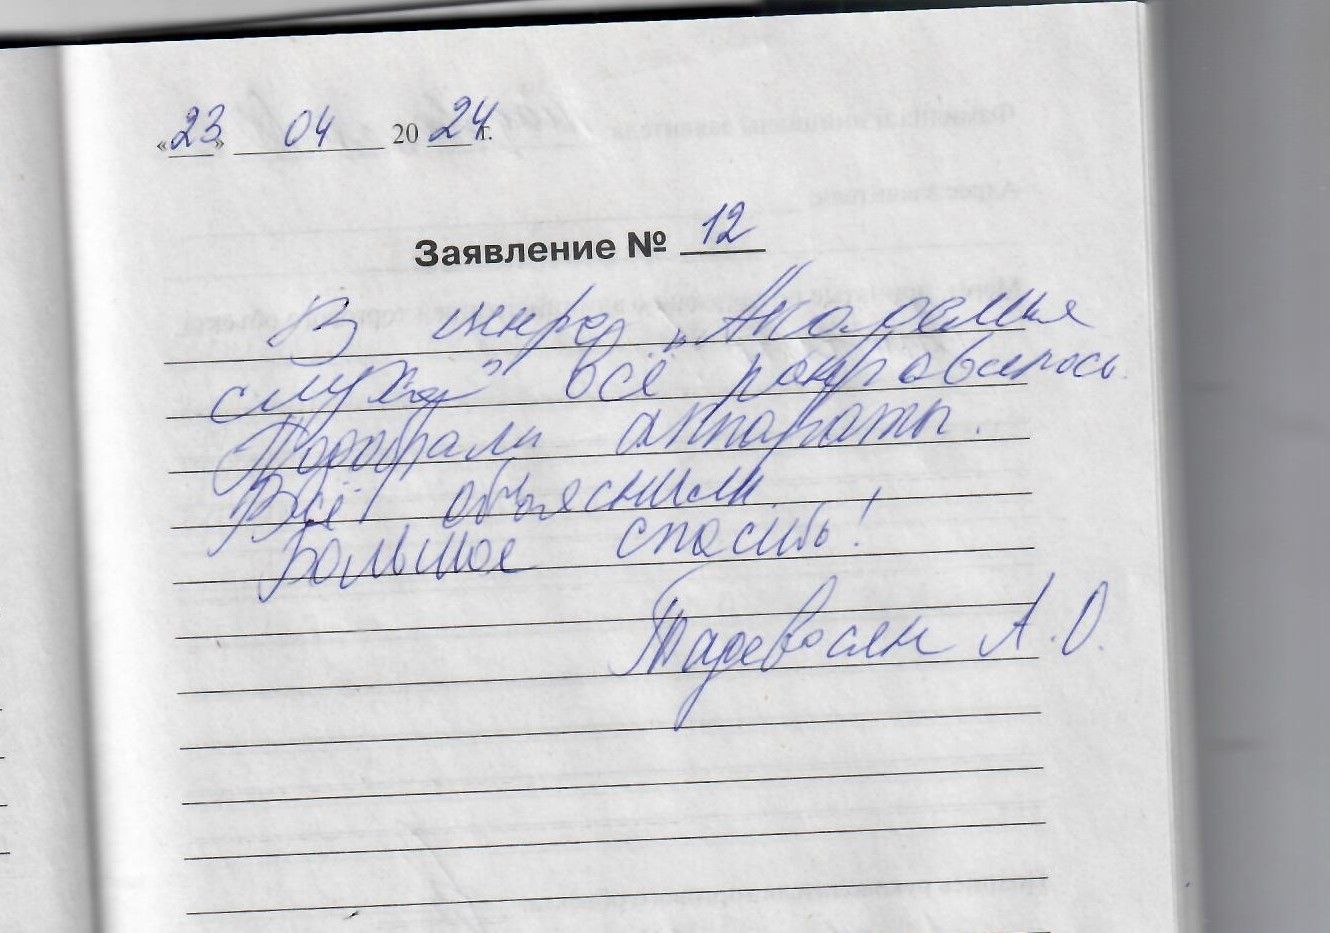 «23» 04 2024 г.
Заявление № 12
В центре „Академия
слуха" всё понравилось.
Подобрали аппараты.
Всё объяснили.
Большое спасибо!
Тадевосян А.О.